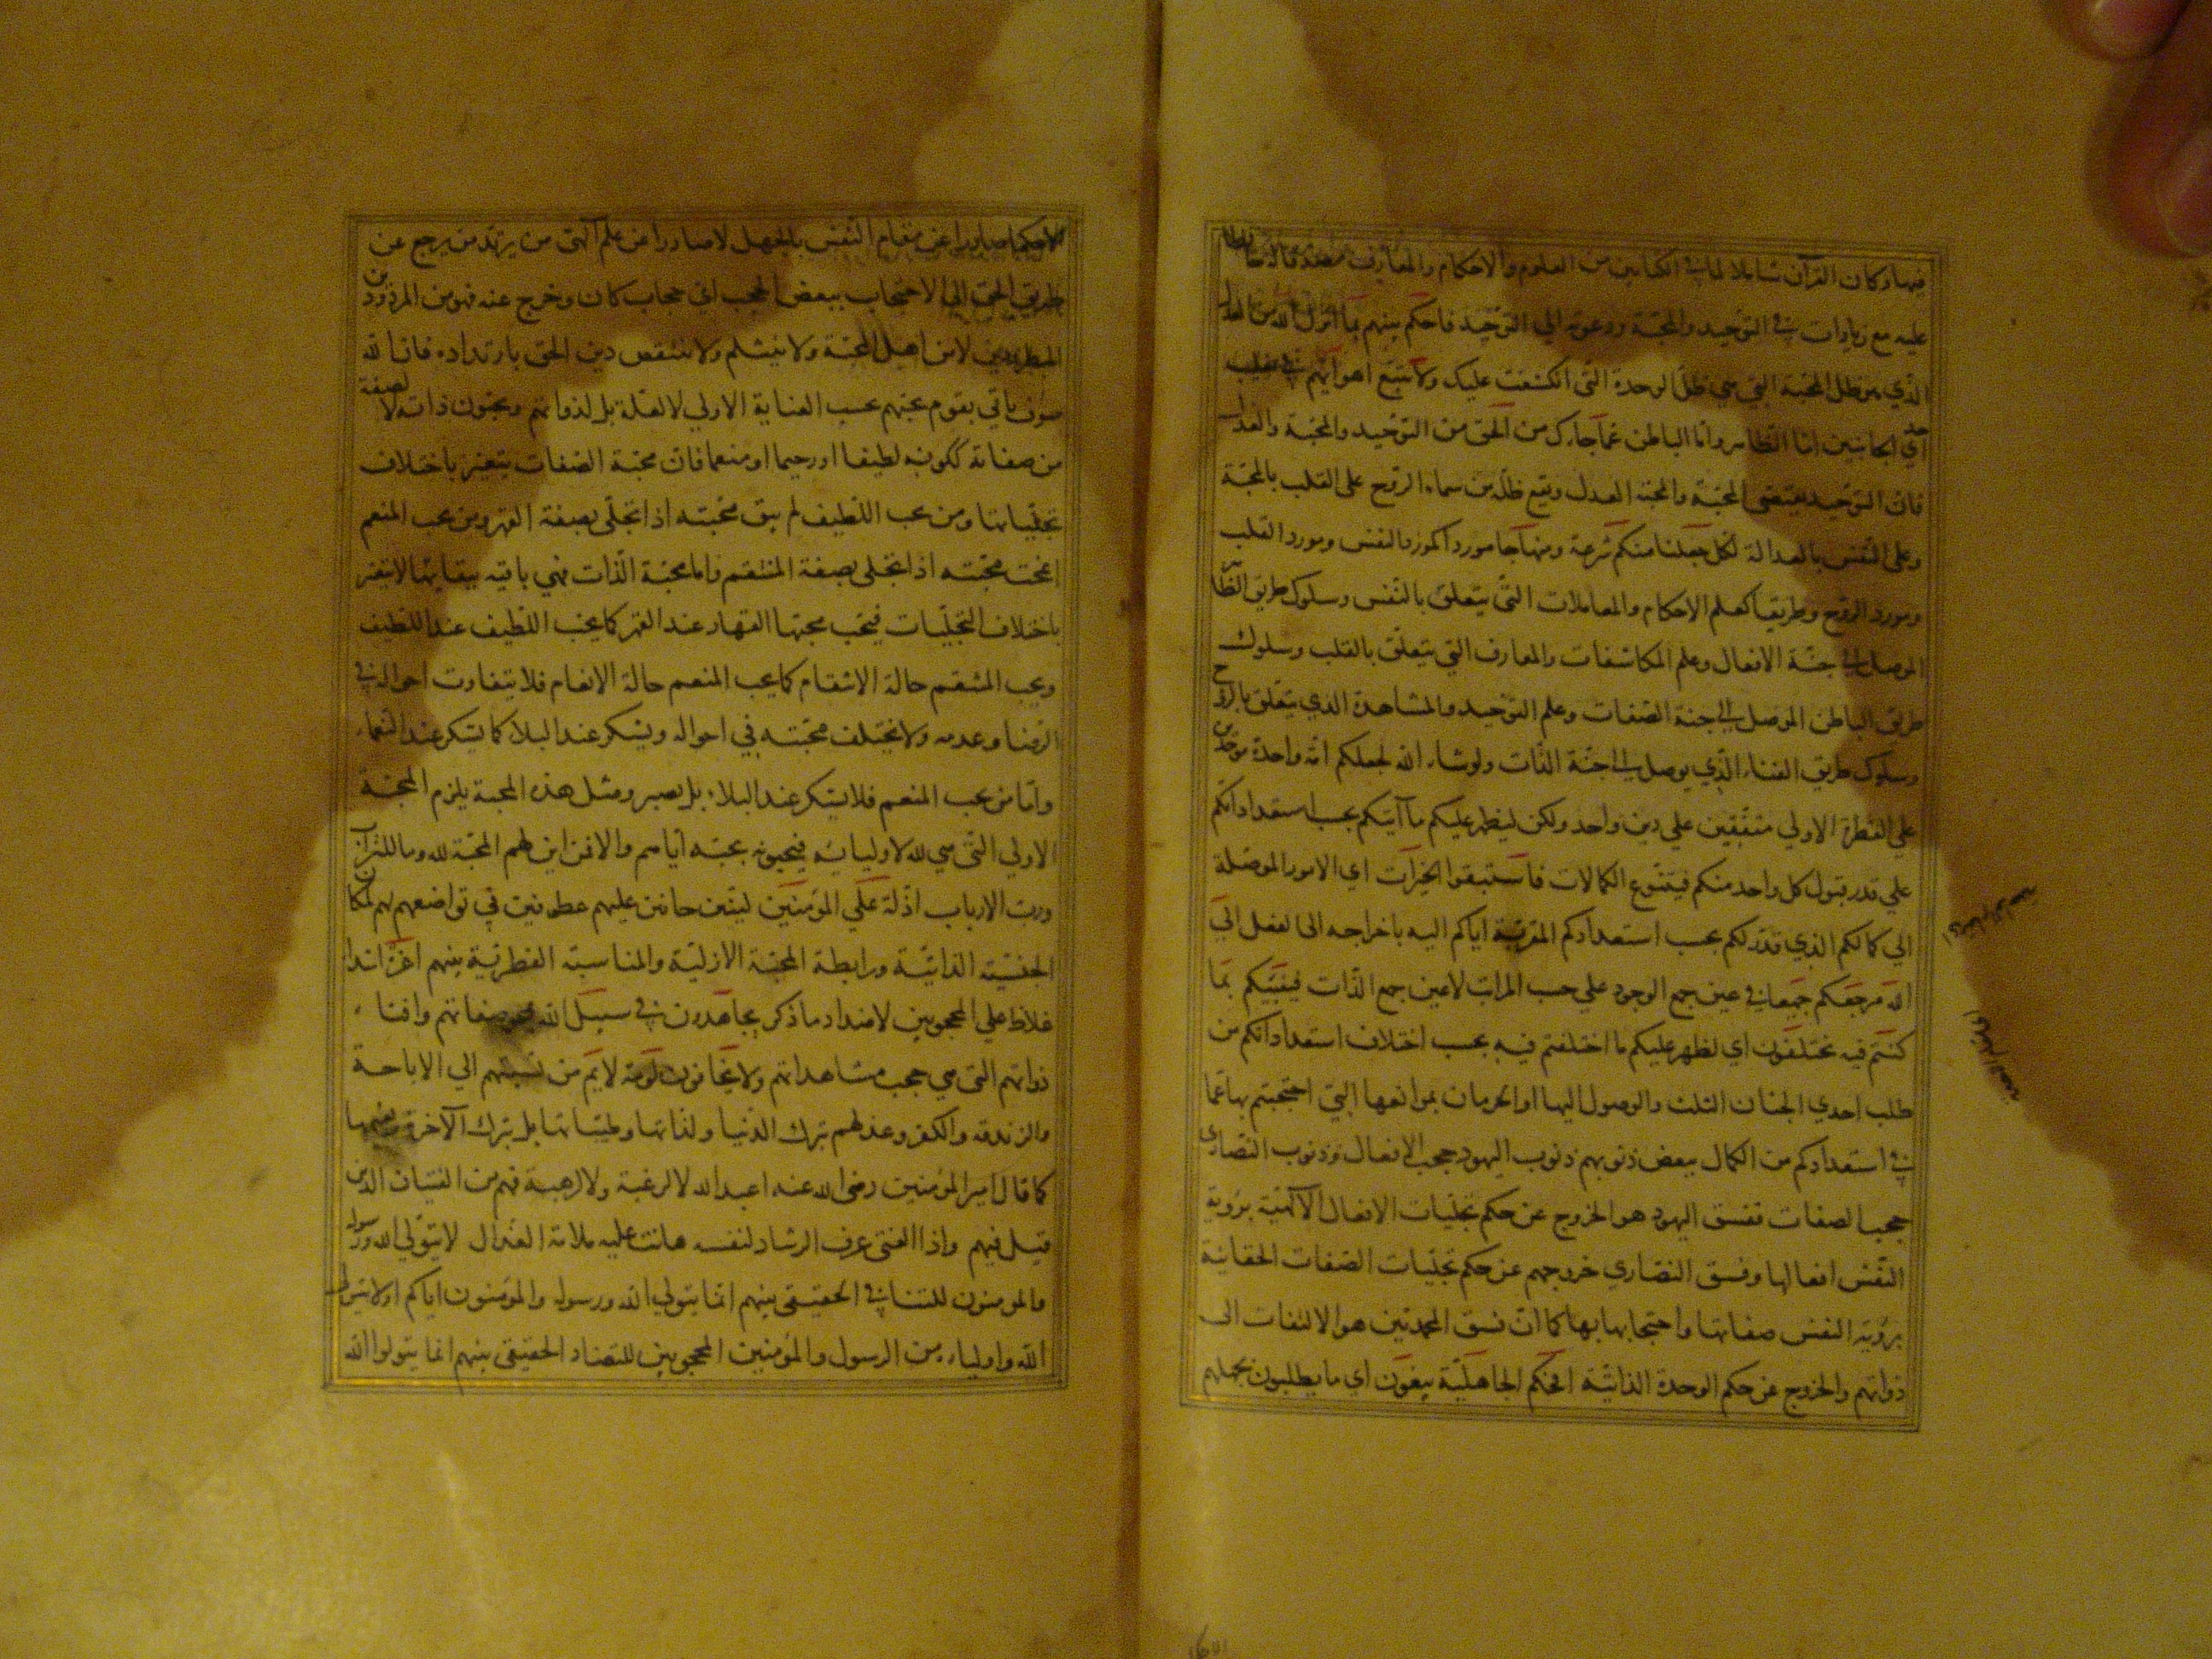 فيها وكان القرآن شاملا لما في الكتابين من العلوم والاحكام والمعارف
عليه مع زيادات في التوحيد والمحبة ودعوته الي التوحيد فاحكم بينهم بما انزل الله من العدل
الذي هو ظل المحبة التي هي ظل الوحدة التي انكشفت عليك ولا تتبع اهوآئهم في تغليب
احد الجانبين اما الظاهر واما الباطن عما جاءك من الحق من التوحيد والمحبة والعدل
فان التوحيد يقتضي المحبة والمحبة العدل ويقع ظله من سماء الروح على القلب بالمحبة
وعلى النفس بالعدالة لكل جعلنا منكم شرعة ومنهاجا موردا كمورد النفس ومورد القلب
ومورد الروح وطريقا كعلم الاحكام والمعاملات التي يتعلق بالنفس وسلوك طريق الظاهر
الموصل الي جنة الافعال وعلم المكاشفات والمعارف التي يتعلق بالقلب وسلوك
طريق الباطن الموصل الي جنة الصفات وعلم التوحيد والمشاهدة الذي يتعلق بالروح
وسلوك طريق الفناء الذي يوصل الي جنة الذات ولو شاء الله لجعلكم امة واحدة موحدين
علي الفطرة الاولي متفقين علي دين واحد ولكن ليظهر عليكم ما آتيكم بحسب استعداداتكم
علي قدر قبول كل واحد منكم فيتنوع الكمالات فاستبقوا الخيرات اي الامور الموصلة
الي كمالكم الذي قدر لكم بحسب استعدادكم المقربة اياكم اليه باخراجه الى الفعل الي
الله مرجعكم جميعا في عين جمع الوجود علي حسب المراتب لا عين جمع الذات فينبئكم بما
كنتم فيه تختلفون اي يظهر عليكم ما اختلفتم فيه بحسب اختلاف استعداداتكم من
طلب احدي الجنان الثلث والوصول اليها او الحرمان بموانعها التي احتجبتم بها عما
في استعدادكم من الكمال ببعض ذنوبهم ذنوب اليهود حجب الافعال وذنوب النصاري
حجب الصفات ففسق اليهود هو الخروج عن حكم تجليات الافعال الالهية برؤية
النفس افعالها وفسق النصاري خروجهم عن حكم تجليات الصفات الحقانية
برؤية النفس صفاتها واحتجابها بها كما ان فسق المحمديين هو الالتفات الى
ذواتهم والخروج عن حكم الوحدة الذاتية افحكم الجاهلية يبغون اي ما يطلبون بجهلهم
الا حكما صادرا عن مقام النفس بالجهل لا صادرا عن علم الهي من يرتد من يرجع عن
طريق الحق الي الاحتجاب ببعض الحجب اي حجاب كان وخرج عنه فهو من المردودين
المطرودين لا من اهل المحبة ولا ينثلم ولا ينتقص دين الحق بارتداده فان الله
سوف ياتي بقوم يحبهم بحسب العناية الاولي لا لعلة بل لذواتهم ويحبون ذاته لا لصفة
من صفاته ككونه لطيفا او رحيما او منعما فان محبة الصفات يتغير باختلاف
تجلياتها ومن يحب اللطيف لم يبق محبته اذا تجلى بصفة القهر ومن يحب المنعم
انمحت محبته اذا تجلى بصفة المنتقم واما محبة الذات فهي باقية ببقائها لا يتغير
باختلاف التجليات فيحب محبها القهار عند القهر كما يحب اللطيف عند اللطف
ويحب المنتقم حالة الانتقام كما يحب المنعم حالة الانعام فلا يتفاوت احواله في
الرضا وعدمه ولا يختلف محبته في احواله ويشكر عند البلاء كما يشكر عند النعماء
واما من يحب المنعم فلا يشكر عند البلاء بل يصبر ومثل هذه المحبة يلزم المحبة
الاولي التي هي لله لاوليائه فيحبونه بمحبته اياهم والا فمن اين لهم المحبة لله وما للتراب
ورب الارباب اذلة علي المؤمنين لينين حانين عليهم عطوفين في تواضعهم لهم لمكان
الجنسية الذاتية ورابطة المحبة الازلية والمناسبة الفطرية بينهم اعزة اشداء
غلاظ علي المحجوبين لاضداد ما ذكر يجاهدون في سبيل الله بمحو صفاتهم وافناء
ذواتهم التي هي حجب مشاهداتهم ولا يخافون لومة لايم من نسبتهم الي الاباحة
والزندقة والكفر وعذلهم بترك الدنيا ولذاتها وطيباتها بل بترك الآخرة ونعيمها
كما قال امير المؤمنين رضي الله عنه اعبد الله لا لرغبة ولا لرهبة فهم من الفتيان الذين
قيل فيهم واذا الفتى عرف الرشاد لنفسه هانت عليه ملامة العذال لا يتولي الله ورسوله
والمومنون للتنافي الحقيقي بينهم انما يتولي الله ورسوله والمؤمنون اياكم او لا يتولي
الله واولياءه من الرسول والمؤمنين المحجوبين للتضاد الحقيقي بينهم انما يتولوا الله